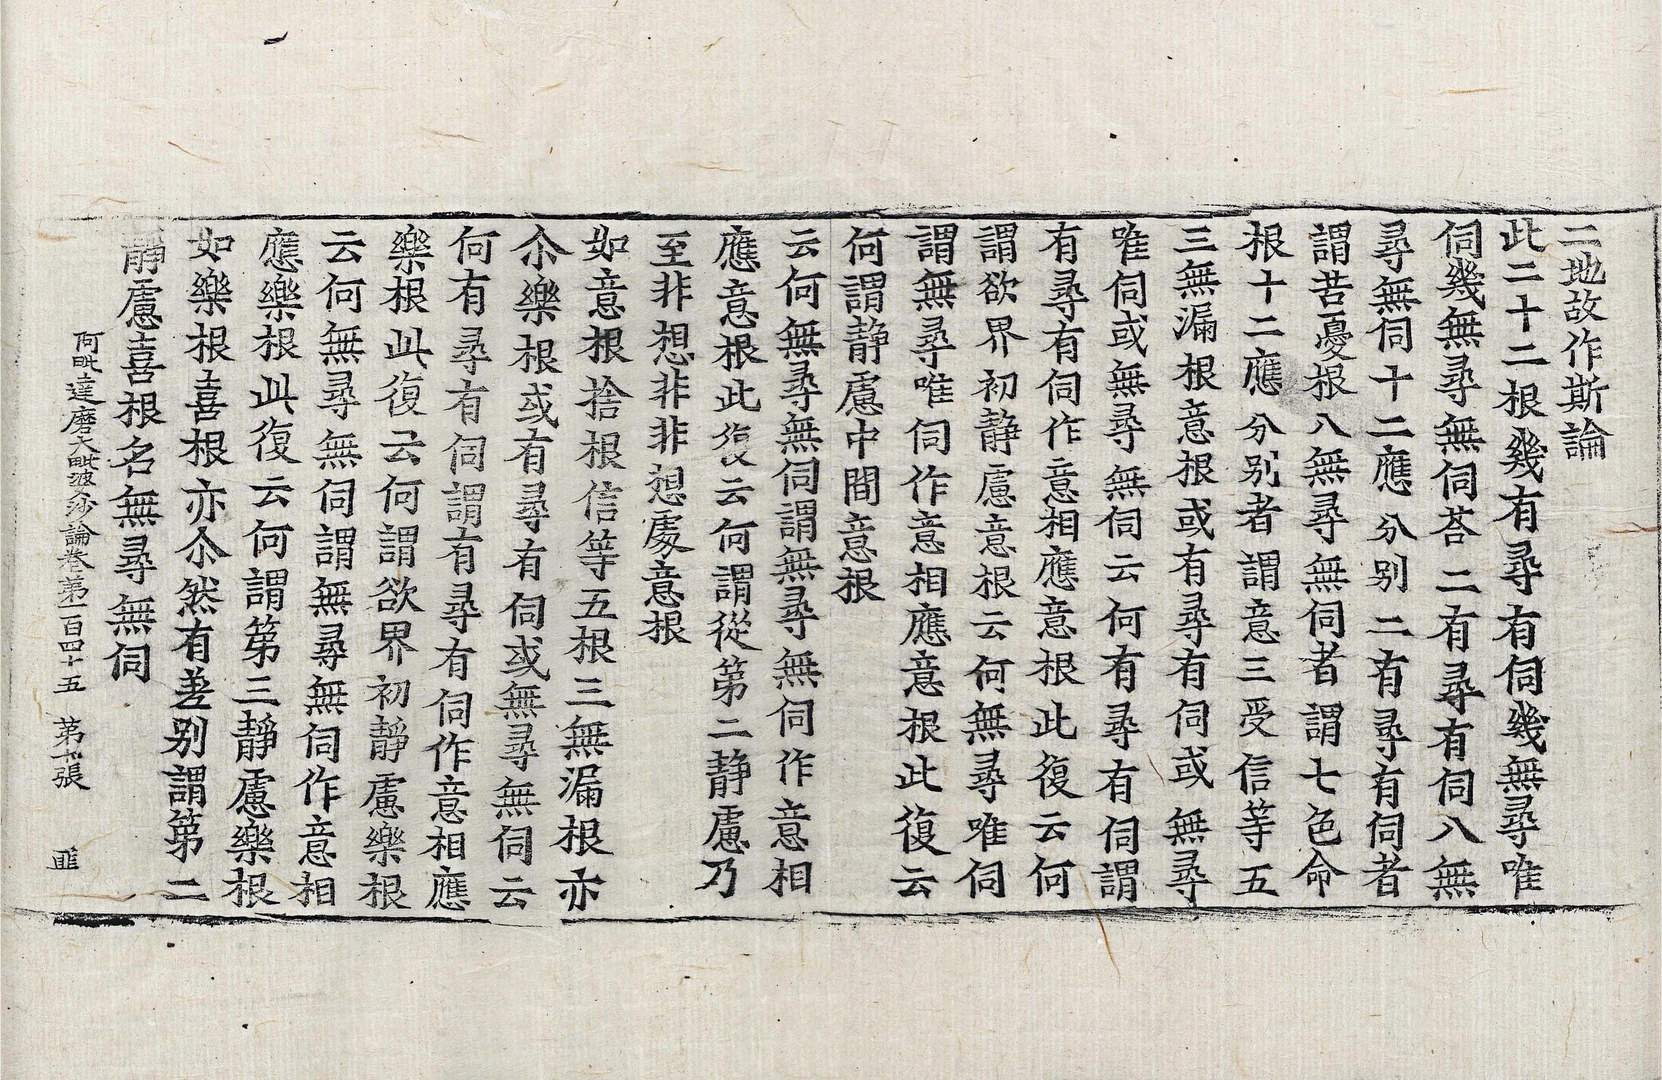 二地故作斯論
此二十二根幾有尋有伺幾無尋唯
伺幾無尋無伺荅二有尋有伺八無
尋無伺十二應分別二有尋有伺者
謂苦憂根八無尋無伺者謂七色命
根十二應分別者謂意三受信等五
三無漏根意根或有尋有伺或無尋
唯伺或無尋無伺云何有尋有伺謂
有尋有伺作意相應意根此復云何
謂欲界初靜慮意根云何無尋唯伺
謂無尋唯伺作意相應意根此復云
何謂靜慮中間意根
云何無尋無伺謂無尋無伺作意相
應意根此復云何謂從第二靜慮乃
至非想非非想處意根
如意根捨根信等五根三無漏根亦
尒樂根或有尋有伺或無尋無伺云
何有尋有伺謂有尋有伺作意相應
樂根此復云何謂欲界初靜慮樂根
云何無尋無伺謂無尋無伺作意相
應樂根此復云何謂第三靜慮樂根
如樂根喜根亦尒然有差別謂第二
靜慮喜根名無尋無伺
阿毗達磨大毗婆沙論卷第一百四十五 第張 匪